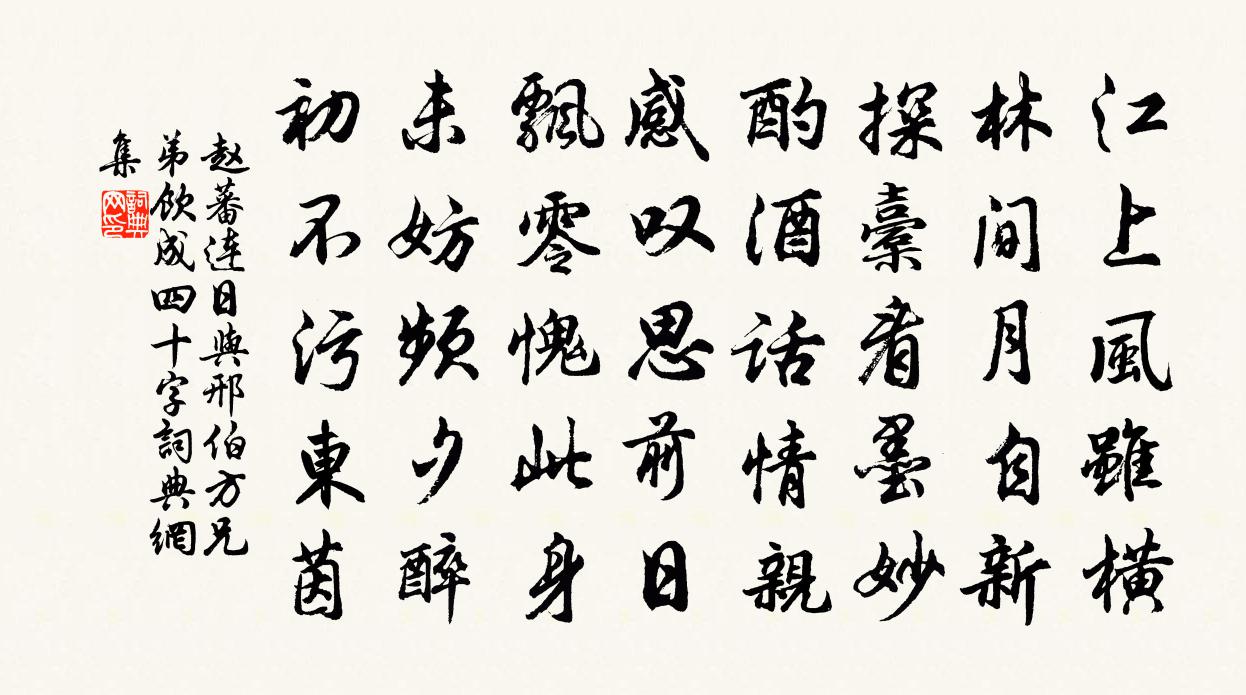 江上風雖橫
林間月自新
探橐看墨妙
酌酒話情親
感叹思前日
飄零愧此身
未妨頻夕醉
初不污東茵
赵蕃连日與邢伯方兄
弟飲成四十字詞典網
集
詞典网印